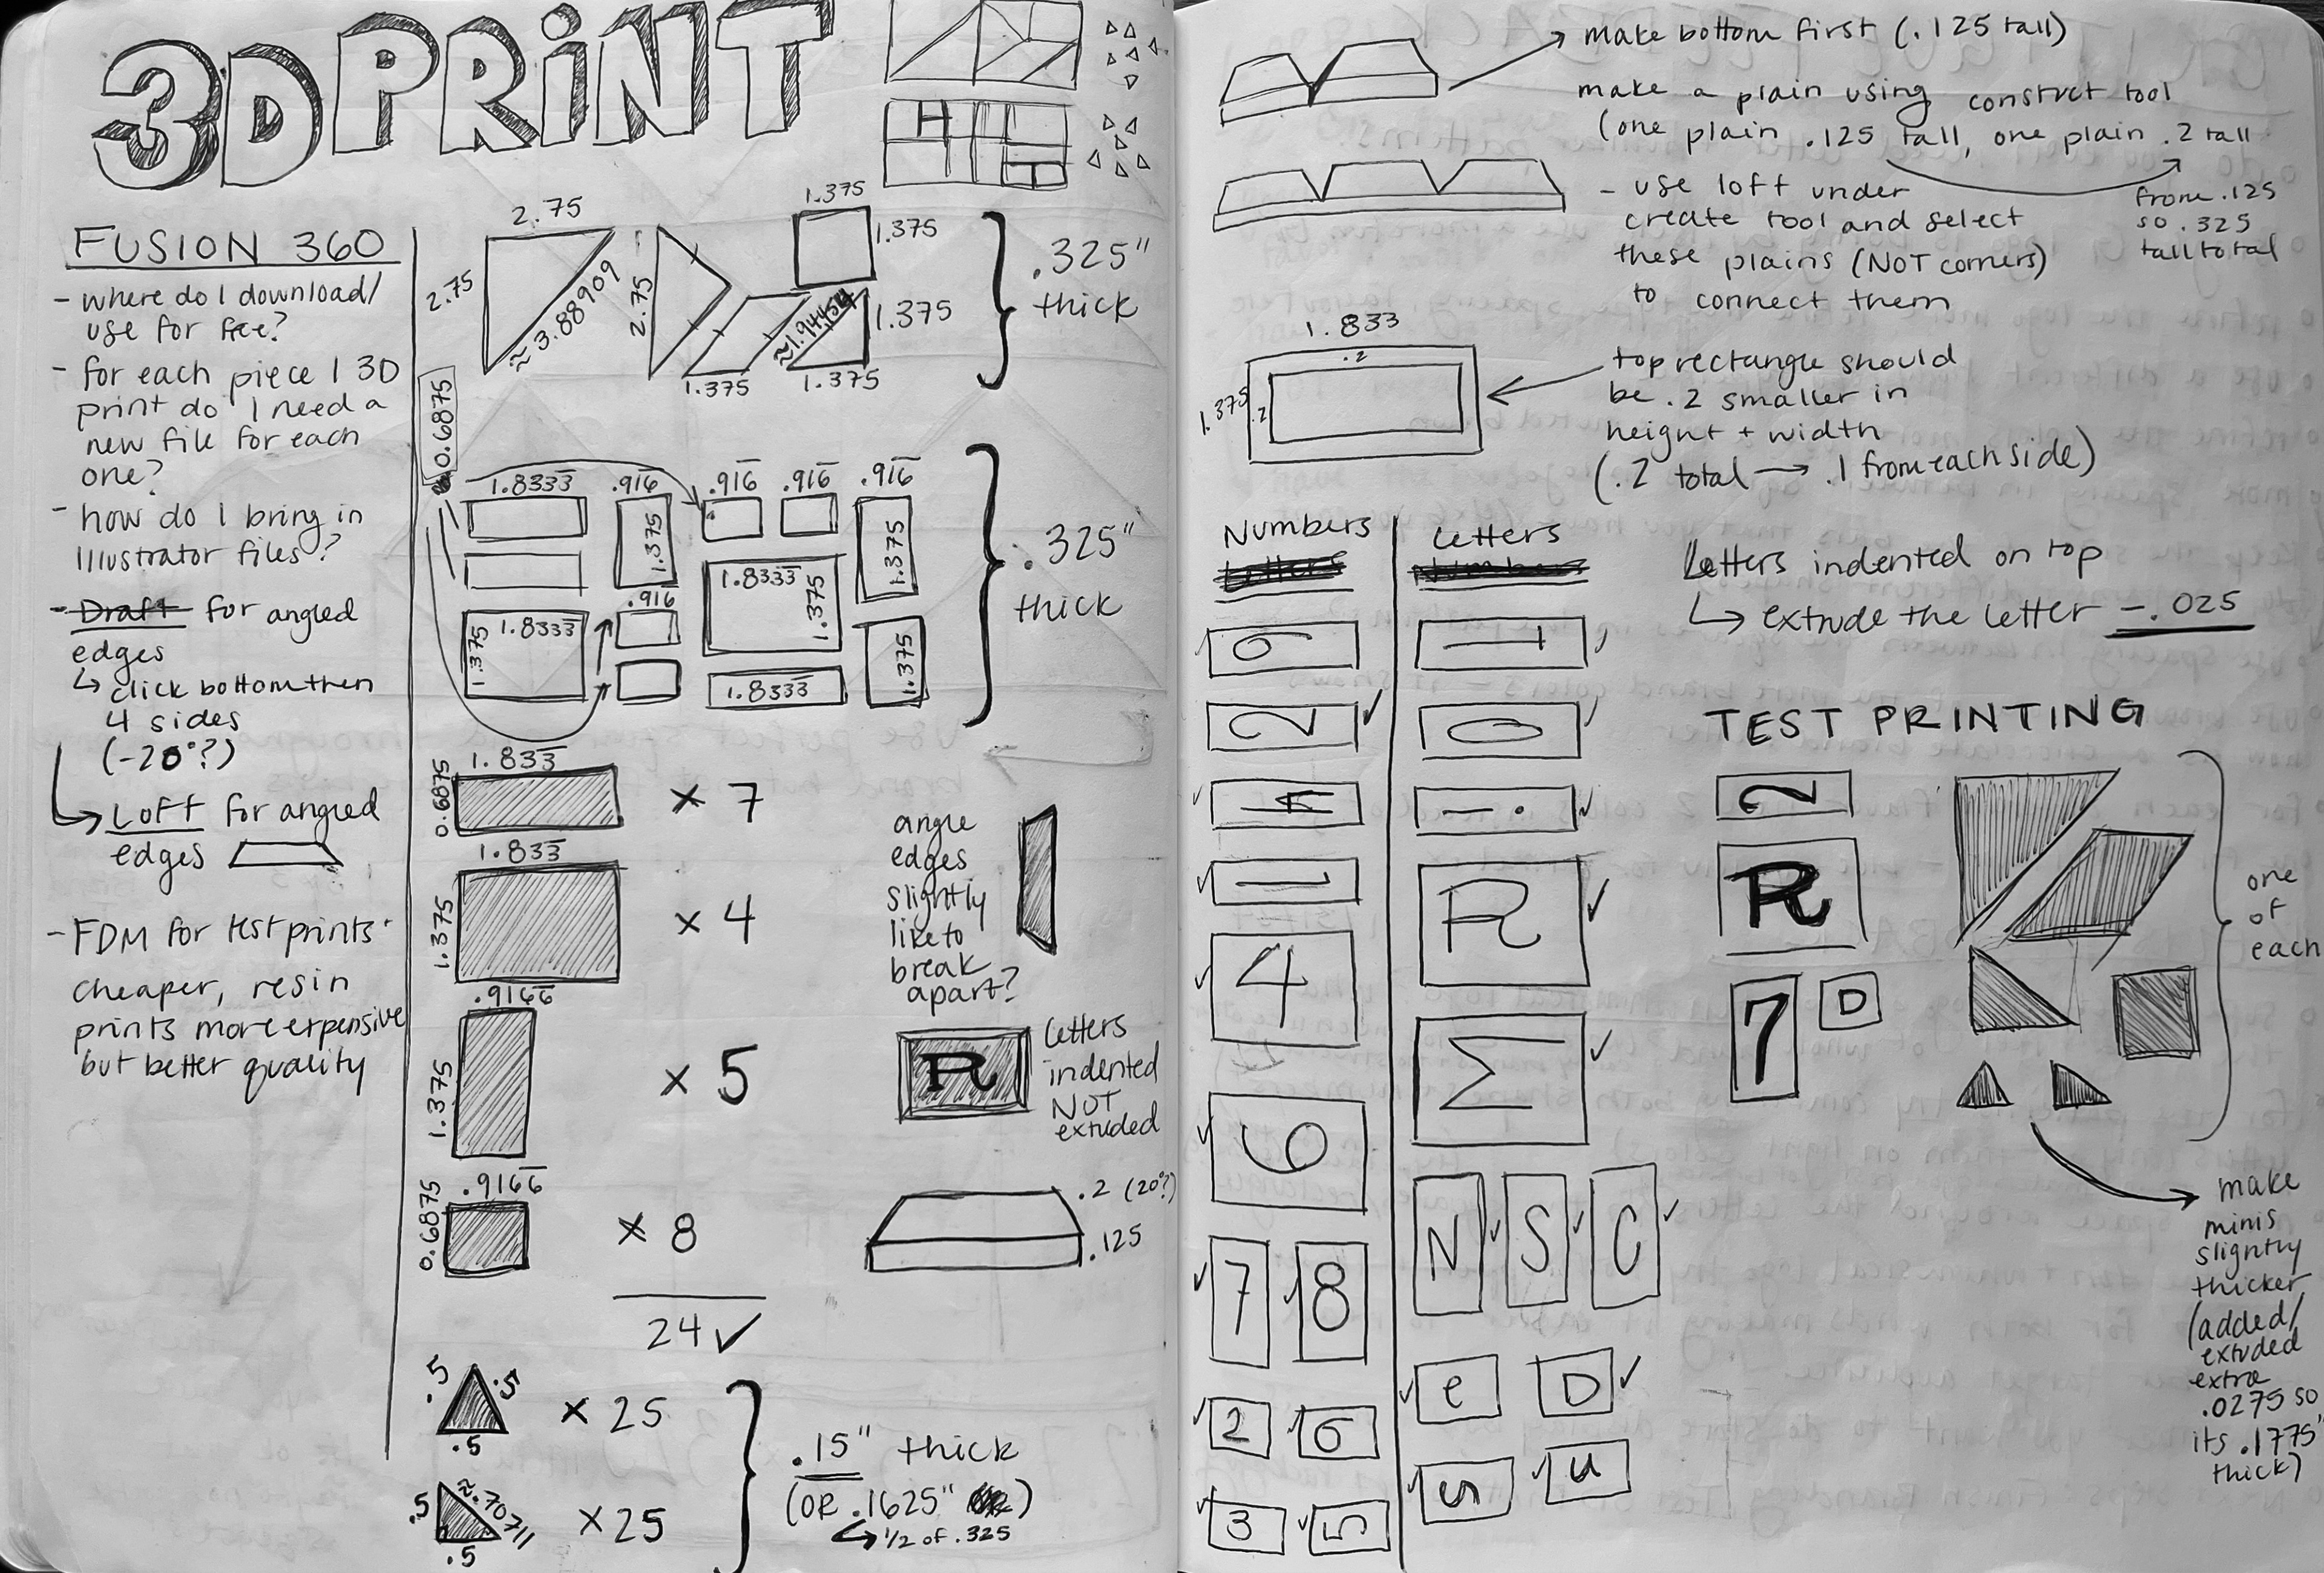 3D PRINT
FUSION 360
- where do I download/
use for free?
- for each piece I 3D
print do I need a
new file for each
one?
- how do I bring in
Illustrator files?
- Draft for angled
edges
↳ click bottom then
4 sides
(-20°?)
↳ Loft for angled
edges
- FDM for test prints
cheaper, resin
prints more expensive
but better quality
2.75
2.75
≈3.88909
2.75
1.375
1.375
1.375
≈1.94454
1.375
1.375
.325"
thick
0.6875
1.8333
.916
.916
.916
.916
1.375
1.375
1.8333
1.375
.916
1.8333
1.375
1.375
1.8333
.325"
thick
1.833
0.6875
× 7
1.833
1.375
× 4
.9166
1.375
× 5
.9166
0.6875
× 8
24 ✓
angle
edges
slightly
like to
break
apart?
R
letters
indented
NOT
extuded
.2 (20°?)
.125
.5
.5
.5
× 25
.5
≈.70711
.5
× 25
.15" thick
(OR .1625" )
↳ 1/2 of .325
make bottom first (.125 tall)
make a plain using construct tool
(one plain .125 tall, one plain .2 tall
from .125
so .325
tall total
- use loft under
create tool and select
these plains (NOT corners)
to connect them
1.833
.2
1.375
.2
top rectangle should
be .2 smaller in
height + width
(.2 total → .1 from each side)
Numbers
Letters
Letters
Numbers
6
2
4
1
4
6
7
8
2
6
3
5
T
0
i
R
Σ
N
S
C
e
D
S
u
Letters indented on top
↳ extrude the letter -.025
TEST PRINTING
2
R
7
D
one
of
each
make
minis
slightly
thicker
(added/
extuded
extra
.0275 so
its .1775"
thick)